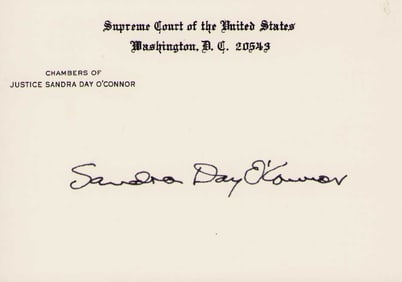 Supreme Court of the United States
Washington, D. C. 20543
CHAMBERS OF
JUSTICE SANDRA DAY O'CONNOR
Sandra Day O'Connor